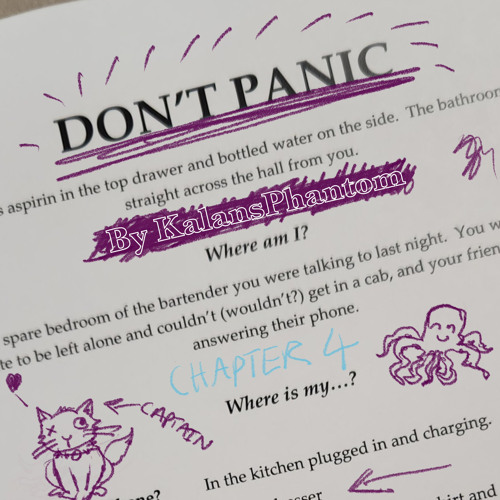 DON'T PANIC
aspirin in the top drawer and bottled water on the side. The bathroom
straight across the hall from you.
By KalansPhantom
Where am I?
spare bedroom of the bartender you were talking to last night. You
to be left alone and couldn't (wouldn't?) get in a cab, and your
answering their phone.
CHAPTER 4
Where is my...?
CAPTAIN
In the kitchen plugged in and charging.
and